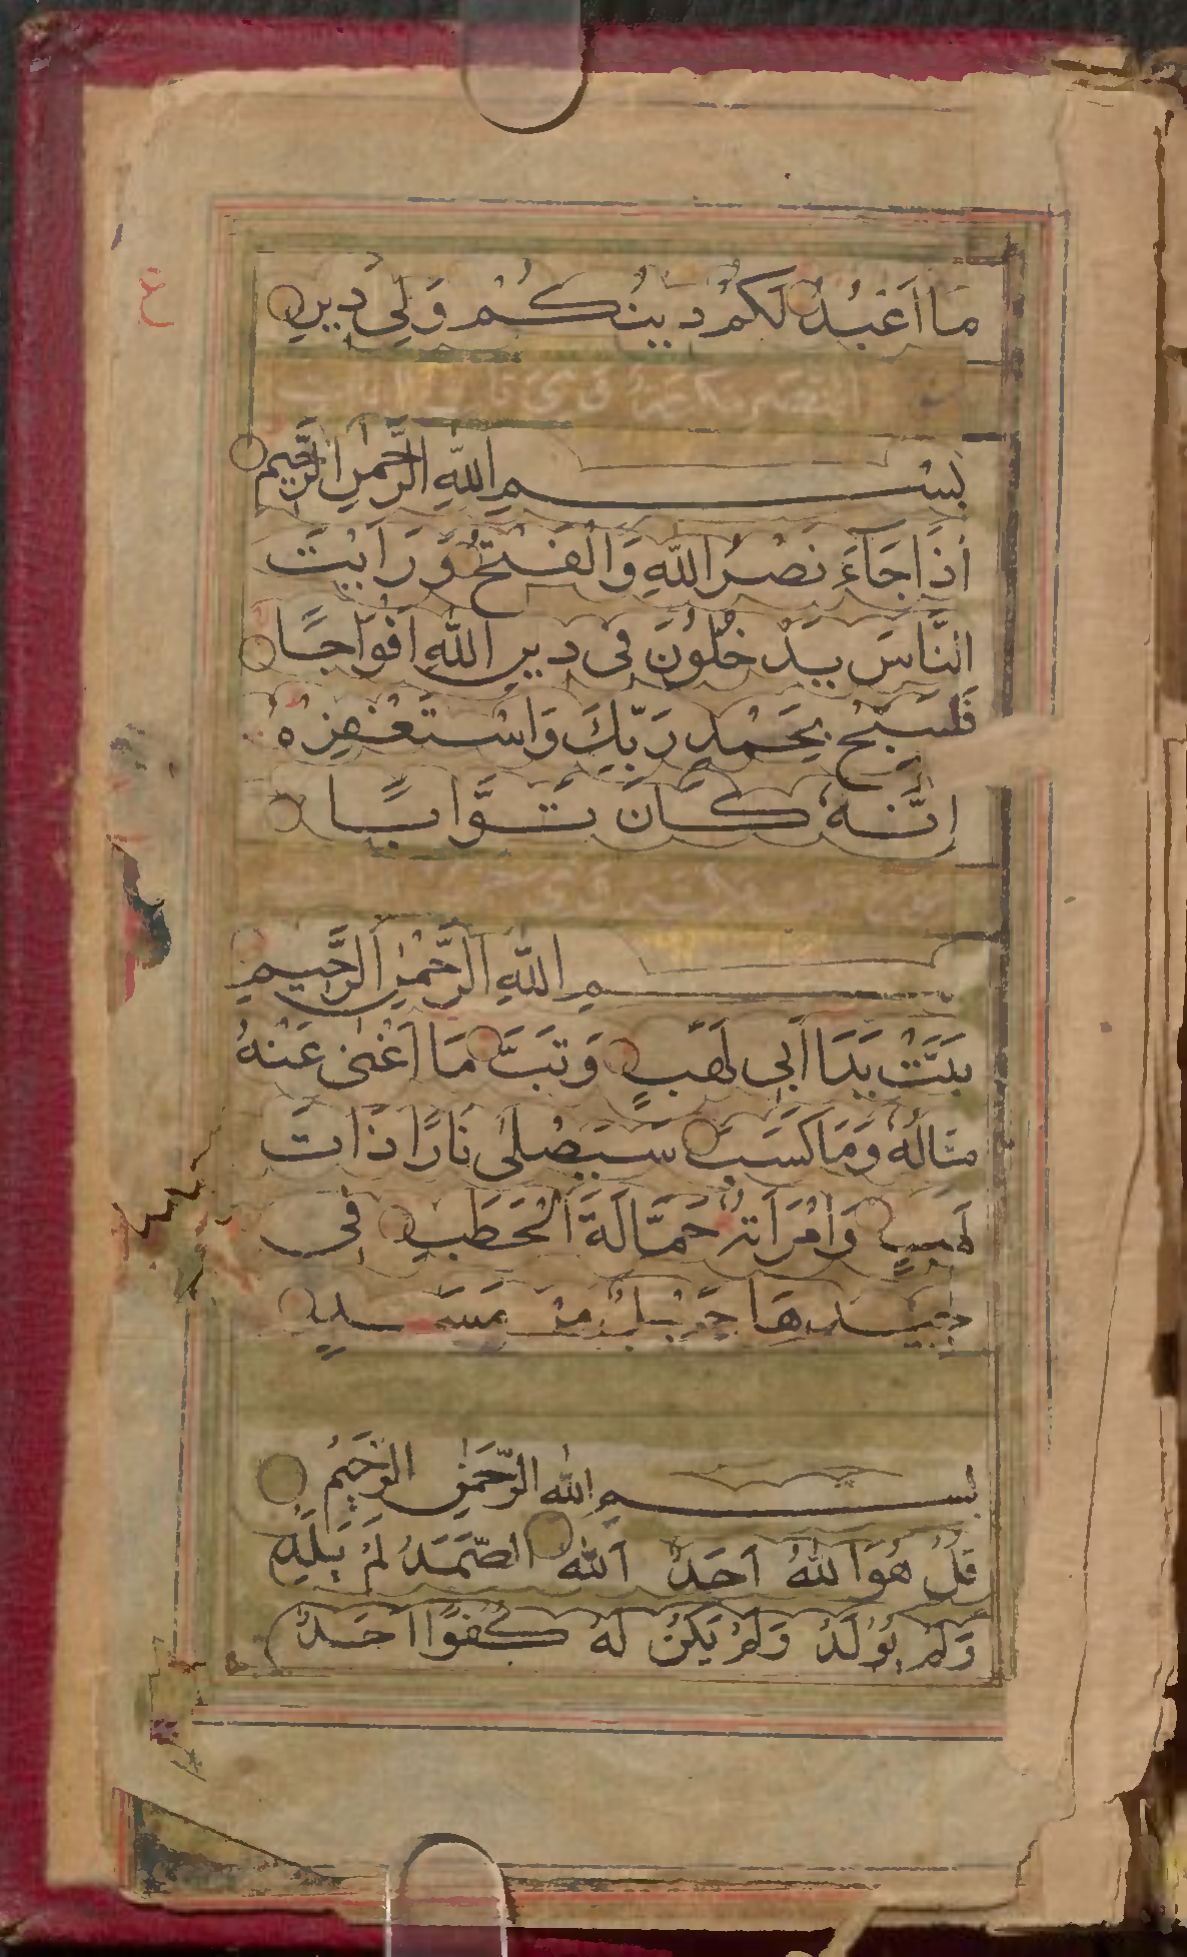 مَا اَعْبُدُ لَكُمْ دِينُكُمْ وَلِيَ دِينِ
بِسْمِ اللّٰهِ الرَّحْمٰنِ الرَّحِيمِ
اِذَا جَاءَ نَصْرُ اللّٰهِ وَالْفَتْحُ وَرَاَيْتَ
النَّاسَ يَدْخُلُونَ فِى دِينِ اللّٰهِ اَفْوَاجًا
فَسَبِّحْ بِحَمْدِ رَبِّكَ وَاسْتَغْفِرْهُ
اِنَّهُ كَانَ تَوَّابًا
مِ اللّٰهِ الرَّحْمٰنِ الرَّحِيمِ
تَبَّتْ يَدَا اَبِى لَهَبٍ وَتَبَّ مَا اَغْنٰى عَنْهُ
مَالُهُ وَمَا كَسَبَ سَيَصْلٰى نَارًا ذَاتَ
لَهَبٍ وَامْرَاَتُهُ حَمَّالَةَ الْحَطَبِ فِى
جِيدِهَا حَبْلٌ مِنْ مَسَدٍ
بسم الله الرَّحْمٰنِ الرَّحِيمِ
قُلْ هُوَ اللّٰهُ اَحَدٌ اَللّٰه الصَّمَدُ لَمْ يَلِدْ
وَلَمْ يُولَدْ وَلَمْ يَكُنْ لَهُ كُفُوًا اَحَدٌ
ع